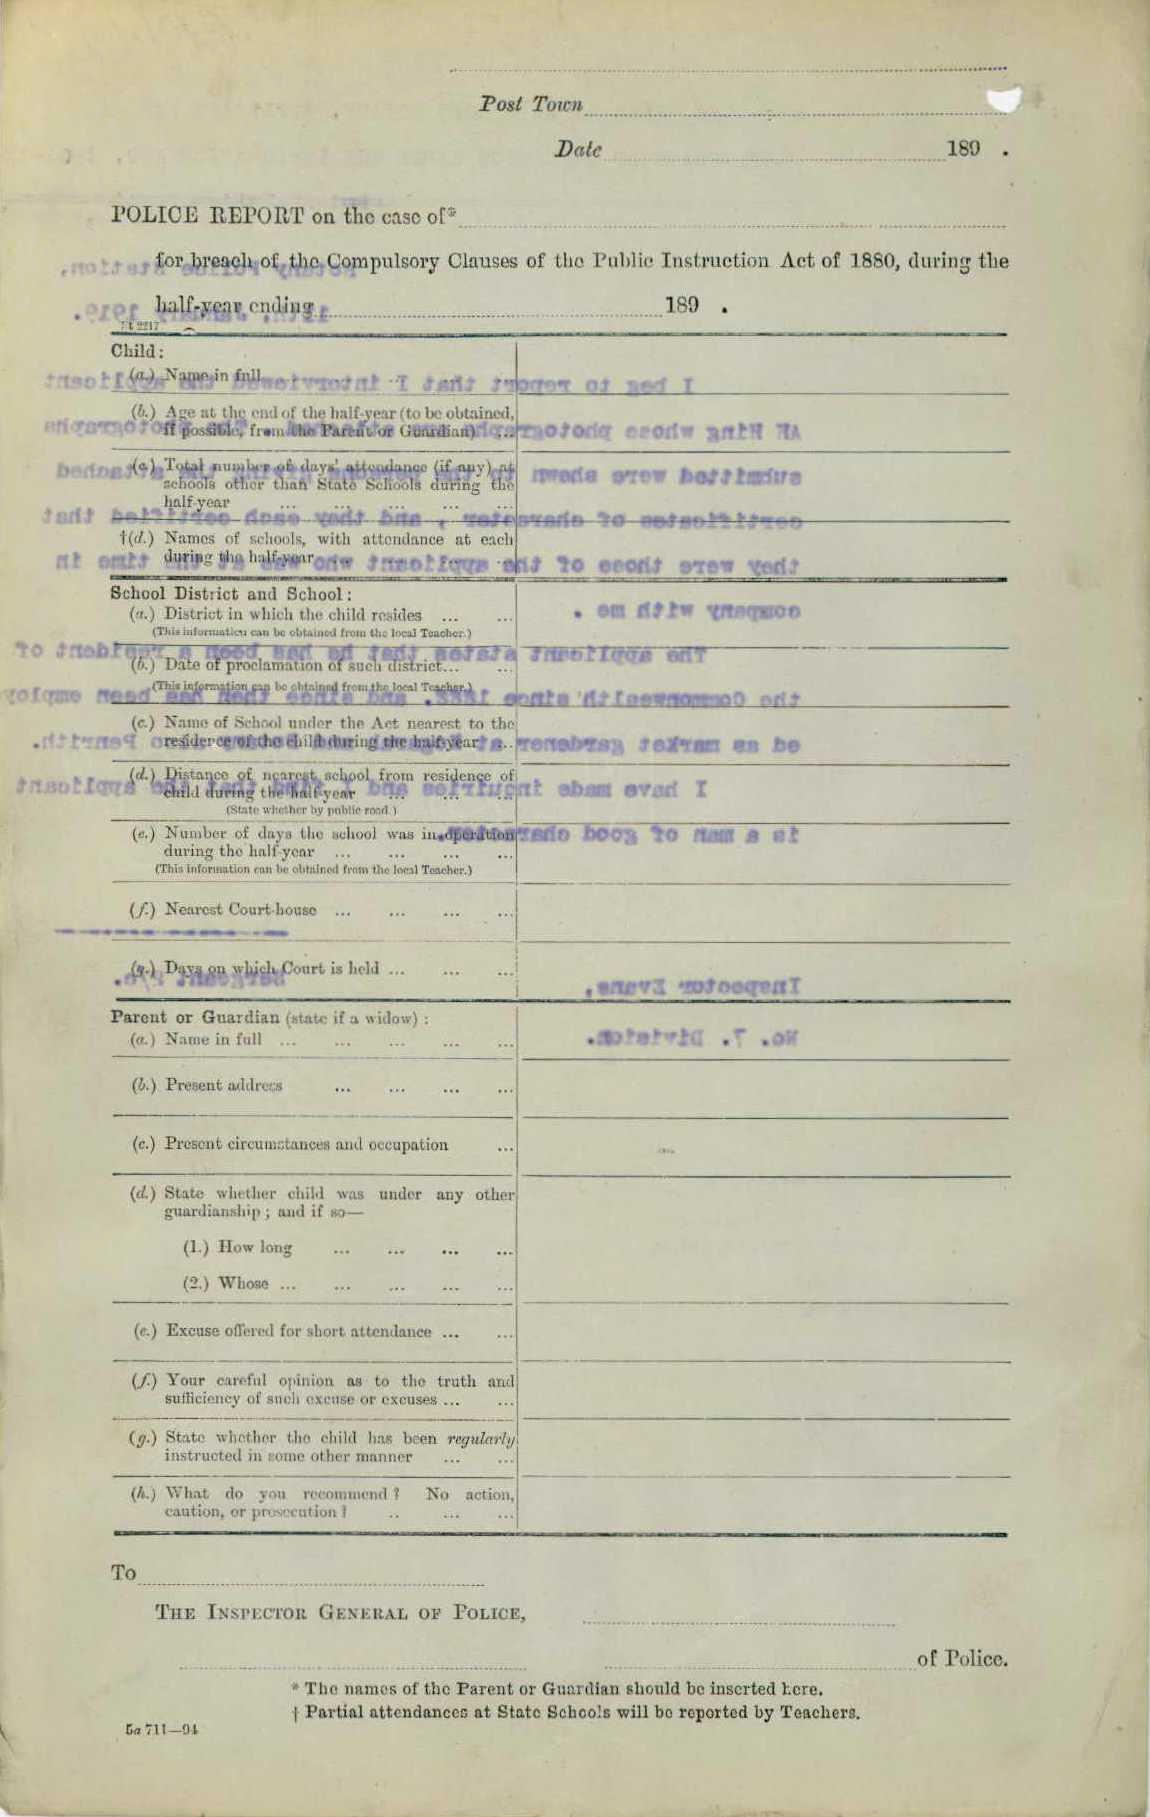 Post Town
Date 189 .
POLICE REPORT on the case of*
for breach of the Compulsory Clauses of the Public Instruction Act of 1880, during the
half-year ending 189 .
Child:
(a.) Name in full ...
(b.) Age at the end of the half-year (to be obtained,
if possible, from the Parent or Guardian) ...
(c.) Total number of days' attendance (if any) at
schools other than State Schools during the
half-year ... ... ... ... ...
†(d.) Names of schools, with attendance at each
during the half-year
School District and School:
(a.) District in which the child resides ... ...
(This information can be obtained from the local Teacher.)
(b.) Date of proclamation of such district... ...
(This information can be obtained from the local Teacher.)
(c.) Name of School under the Act nearest to the
residence of the child during the half-year ...
(d.) Distance of nearest school from residence of
child during the half-year ... ... ...
(State whether by public road.)
(e.) Number of days the school was in operation
during the half-year ... ... ... ...
(This information can be obtained from the local Teacher.)
(f.) Nearest Court-house ... ... ... ...
(g.) Days on which Court is held ... ... ...
Parent or Guardian (state if a widow) :
(a.) Name in full ... ... ... ... ...
(b.) Present address ... ... ... ...
(c.) Present circumstances and occupation ...
(d.) State whether child was under any other
guardianship; and if so—
(1.) How long ... ... ... ...
(2.) Whose ... ... ... ... ...
(e.) Excuse offered for short attendance ... ...
(f.) Your careful opinion as to the truth and
sufficiency of such excuse or excuses ... ...
(g.) State whether the child has been regularly
instructed in some other manner ... ...
(h.) What do you recommend? No action,
caution, or prosecution? .. ... ...
To
THE INSPECTOR GENERAL OF POLICE,
of Police.
* The names of the Parent or Guardian should be inserted here.
† Partial attendances at State Schools will be reported by Teachers.
5a 711—94